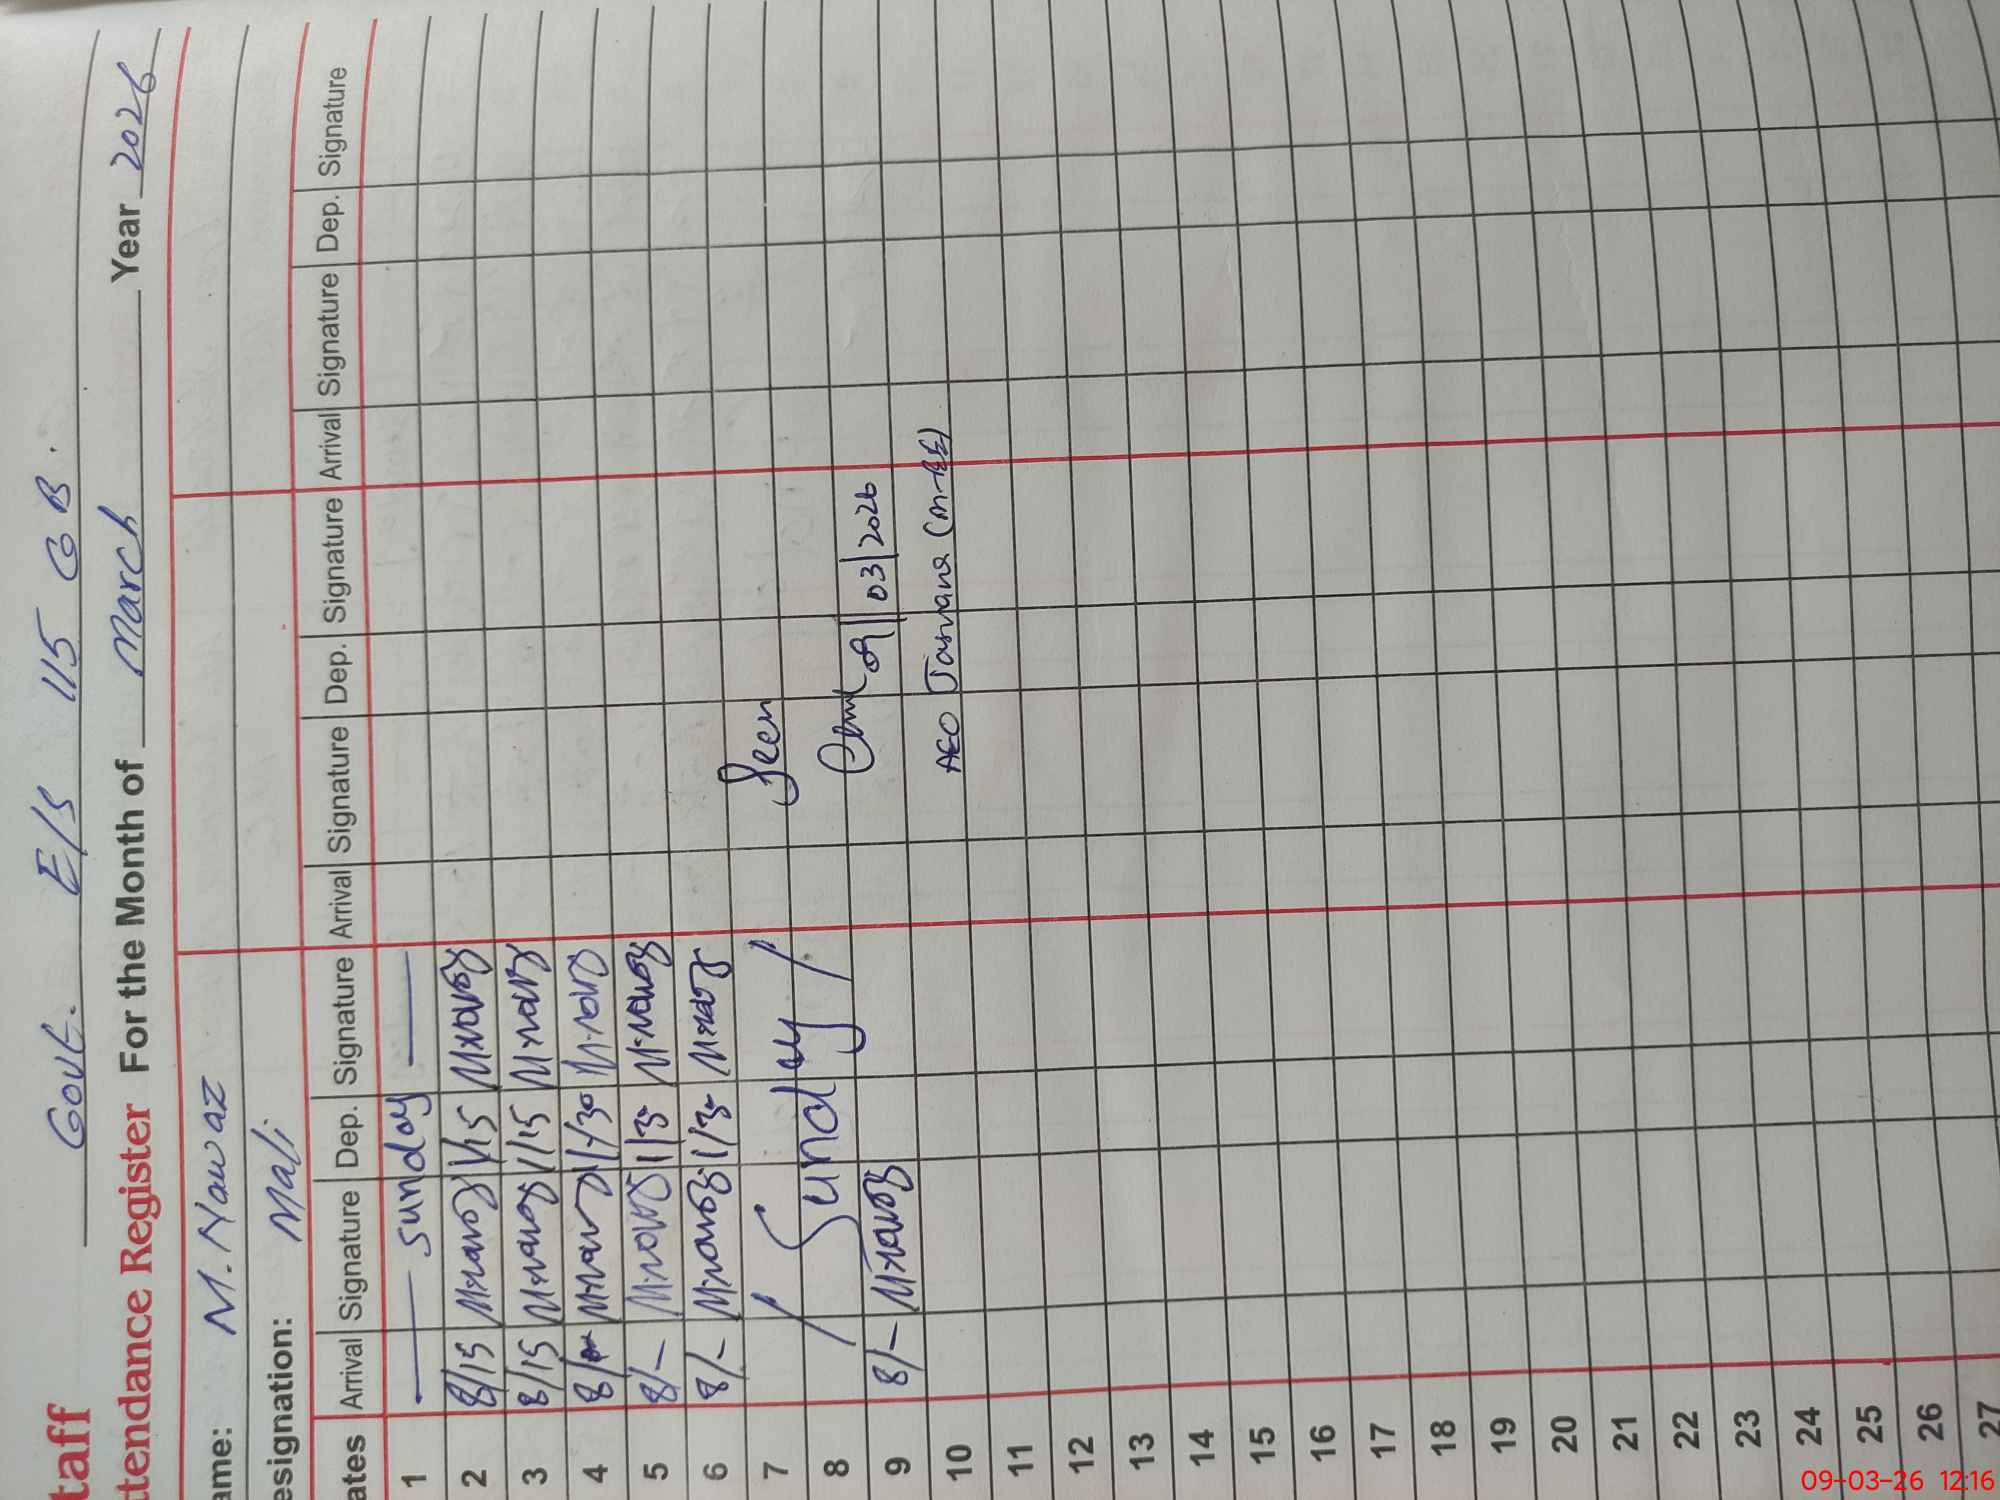 Govt. E/S 115 GB.
taff
ttendance Register For the Month of March Year 2026
ame: M. Nawaz
esignation: Mali
ates Arrival Signature Dep. Signature Arrival Signature Dep. Signature Arrival Signature Dep. Signature
1 Sunday
2 8/15 M.nawaz 1/15 M.nawaz
3 8/15 M.nawaz 1/15 M.nawaz
4 8/ M.nawaz 1/30 M.nawaz
5 8/- M.nawaz 1/30 M.nawaz
6 8/- M.nawaz 1/30 M.nawaz
7 Seen
8 Sunday
9 8/- M.nawaz 09/03/2026
10 AEO (M-EE)
11
12
13
14
15
16
17
18
19
20
21
22
23
24
25
26
27
09-03-26 12:16